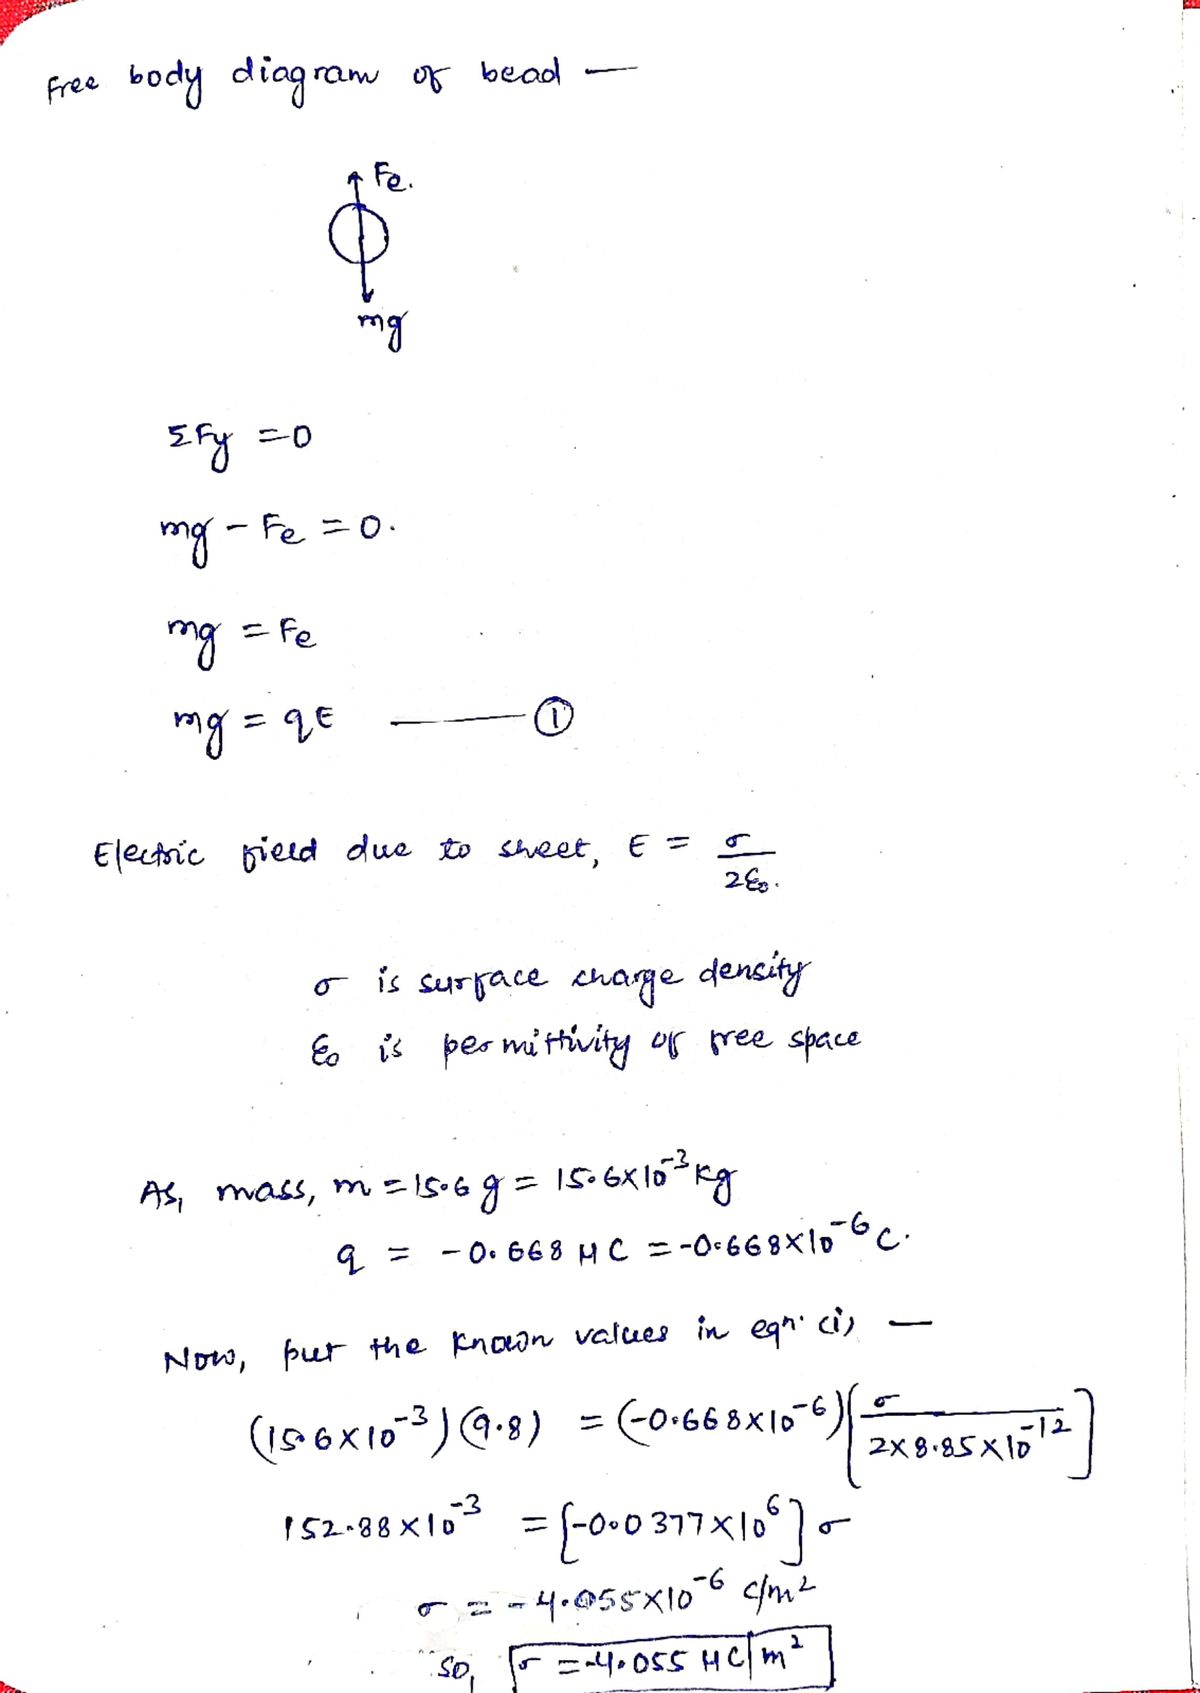 Free body diagram of bead —
Fe.
mg
ΣFy = 0
mg - Fe = 0.
mg = Fe
mg = qE —— ①
Electric field due to sheet, E = σ / 2ε₀.
σ is surface charge density
ε₀ is permittivity of free space
As, mass, m = 15.6 g = 15.6×10⁻³ kg
q = -0.668 μC = -0.668×10⁻⁶ C.
Now, put the known values in eqn. (i) —
(15.6×10⁻³)(9.8) = (-0.668×10⁻⁶)[σ / 2×8.85×10⁻¹²]
152.88×10⁻³ = [-0.0377×10⁶]σ
σ = -4.055×10⁻⁶ C/m²
so, σ = -4.055 μC/m²